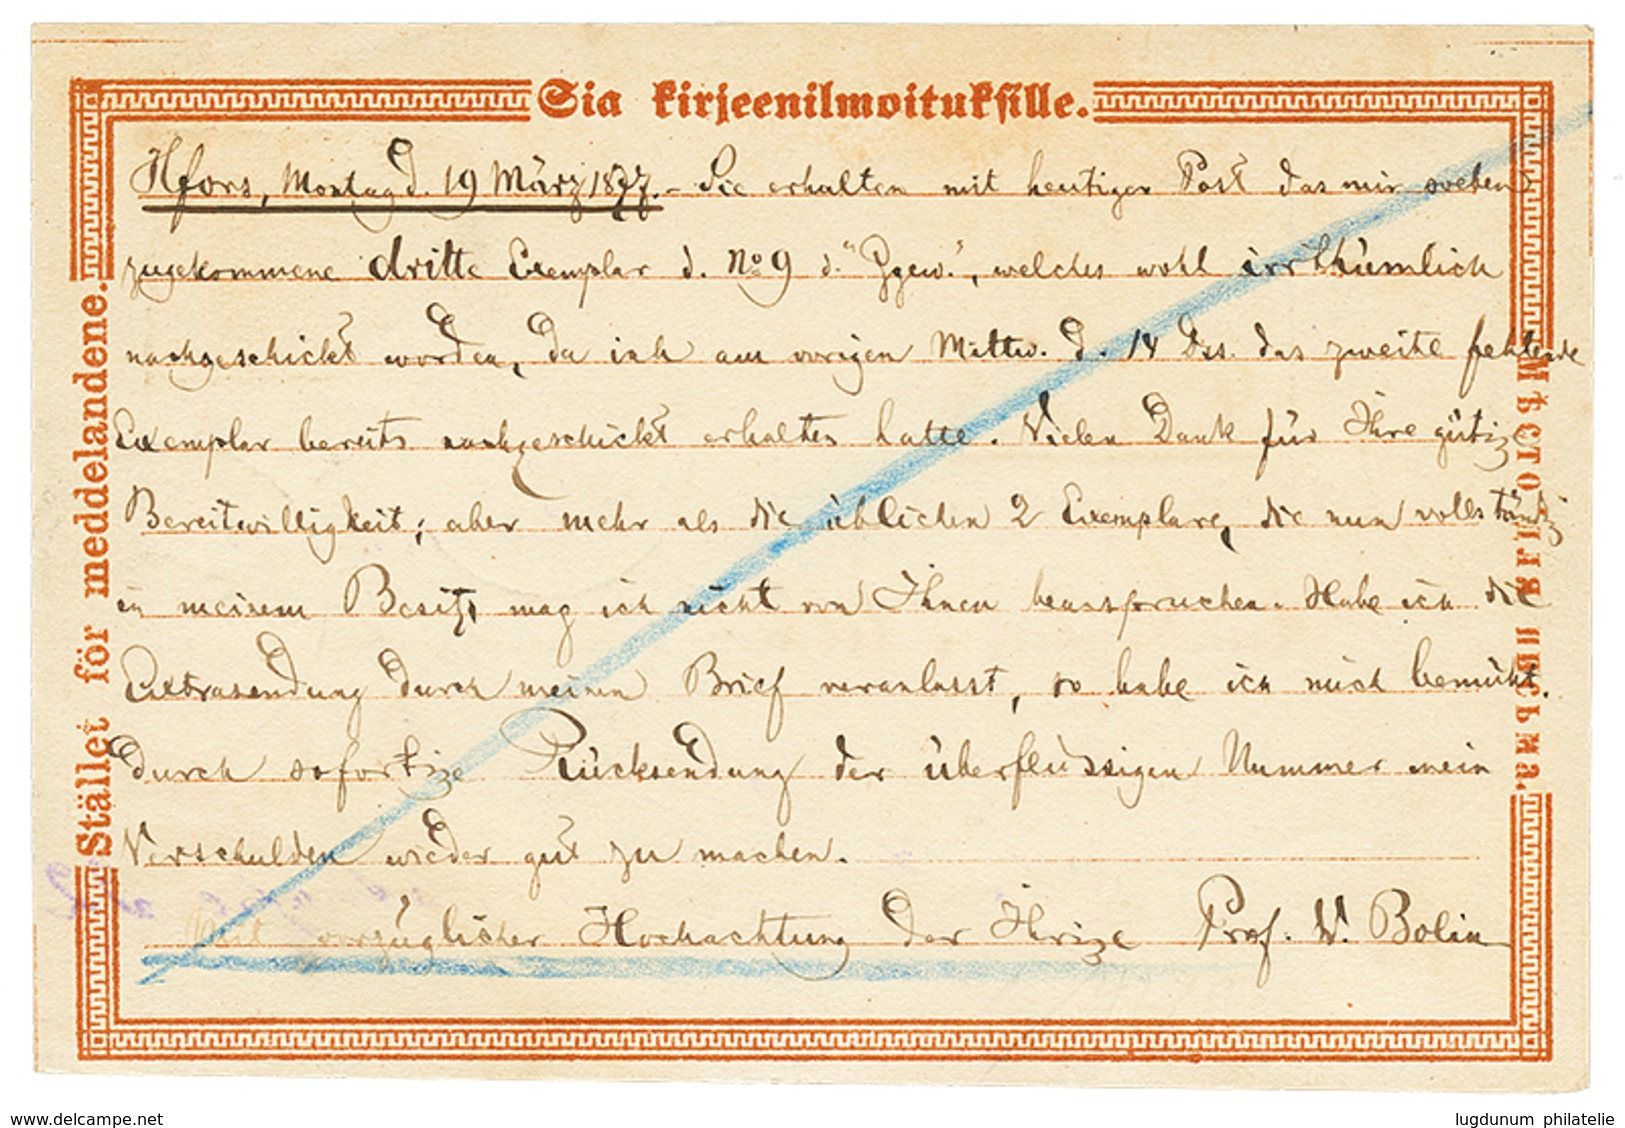 Sia kirjeenilmoituksille.
Stället för meddelandene.
Мѣсто для письма.
Hfors, Montag d. 19 März 1877. - Sie erhalten mit heutiger Post das mir soeben
zugekommene dritte Exemplar d. No 9 d. "Ggew.", welches wohl irrthümlich
nachgeschickt worden, da ich am vorigen Mittw. d. 14 Dss. das zweite fehlende
Exemplar bereits nachgeschickt erhalten hatte. Vielen Dank für Ihre gütige
Bereitwilligkeit; aber mehr als die üblichen 2 Exemplare, die nun vollständig
in meinem Besitz, mag ich nicht von Ihnen beanspruchen. Habe ich die
Extrasendung durch meinen Brief veranlasst, so habe ich mich bemüht.
durch sofortige Rücksendung der überflüssigen Nummer mein
Verschulden wieder gut zu machen.
Mit vorzüglicher Hochachtung der Ihrige Prof. W. Bolin
www.delcampe.net
lugdunum philatelie